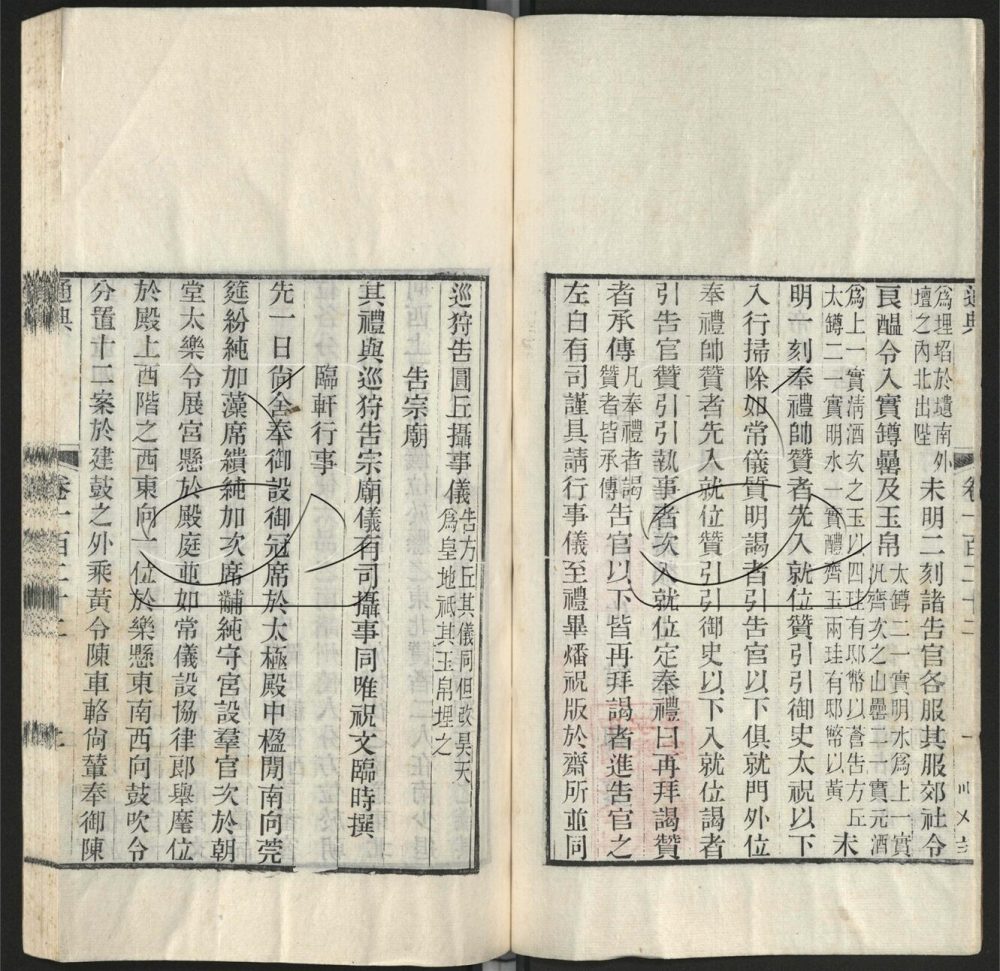 通典
卷一百二十二
一
爲埋埳於壝南外
壇之內北出陛
未明二刻諸告官各服其服郊社令
良醞令入實罇罍及玉帛
太罇二一實明水爲上一實
汎齊次之山罍二一實元酒
爲上一實清酒次之玉以四珪有邸幣以蒼告方丘
太罇二一實明水一實醴齊玉兩珪有邸幣以黃
未
明一刻奉禮帥贊者先入就位贊引引御史太祝以下
入行掃除如常儀質明謁者引告官以下俱就門外位
奉禮帥贊者先入就位贊引引御史以下入就位謁者
引告官贊引引執事者次入就位定奉禮曰再拜謁贊
者承傳
凡奉禮者謁
贊者皆承傳
告官以下皆再拜謁者進告官之
左白有司謹具請行事儀至禮畢燔祝版於齋所並同
巡狩告圓丘攝事儀
告方丘其儀同但改昊天
爲皇地祇其玉帛埋之
告宗廟
其禮與巡狩告宗廟儀有司攝事同唯祝文臨時撰
臨軒行事
先一日尙舍奉御設御冠席於太極殿中楹閒南向莞
筵紛純加藻席繢純加次席黼純守宮設羣官次於朝
堂太樂令展宮懸於殿庭並如常儀設協律郎舉麾位
於殿上西階之西東向一位於樂懸東南西向鼓吹令
分置十二案於建鼓之外乘黃令陳車輅尙輦奉御陳
通典
卷一百二十二